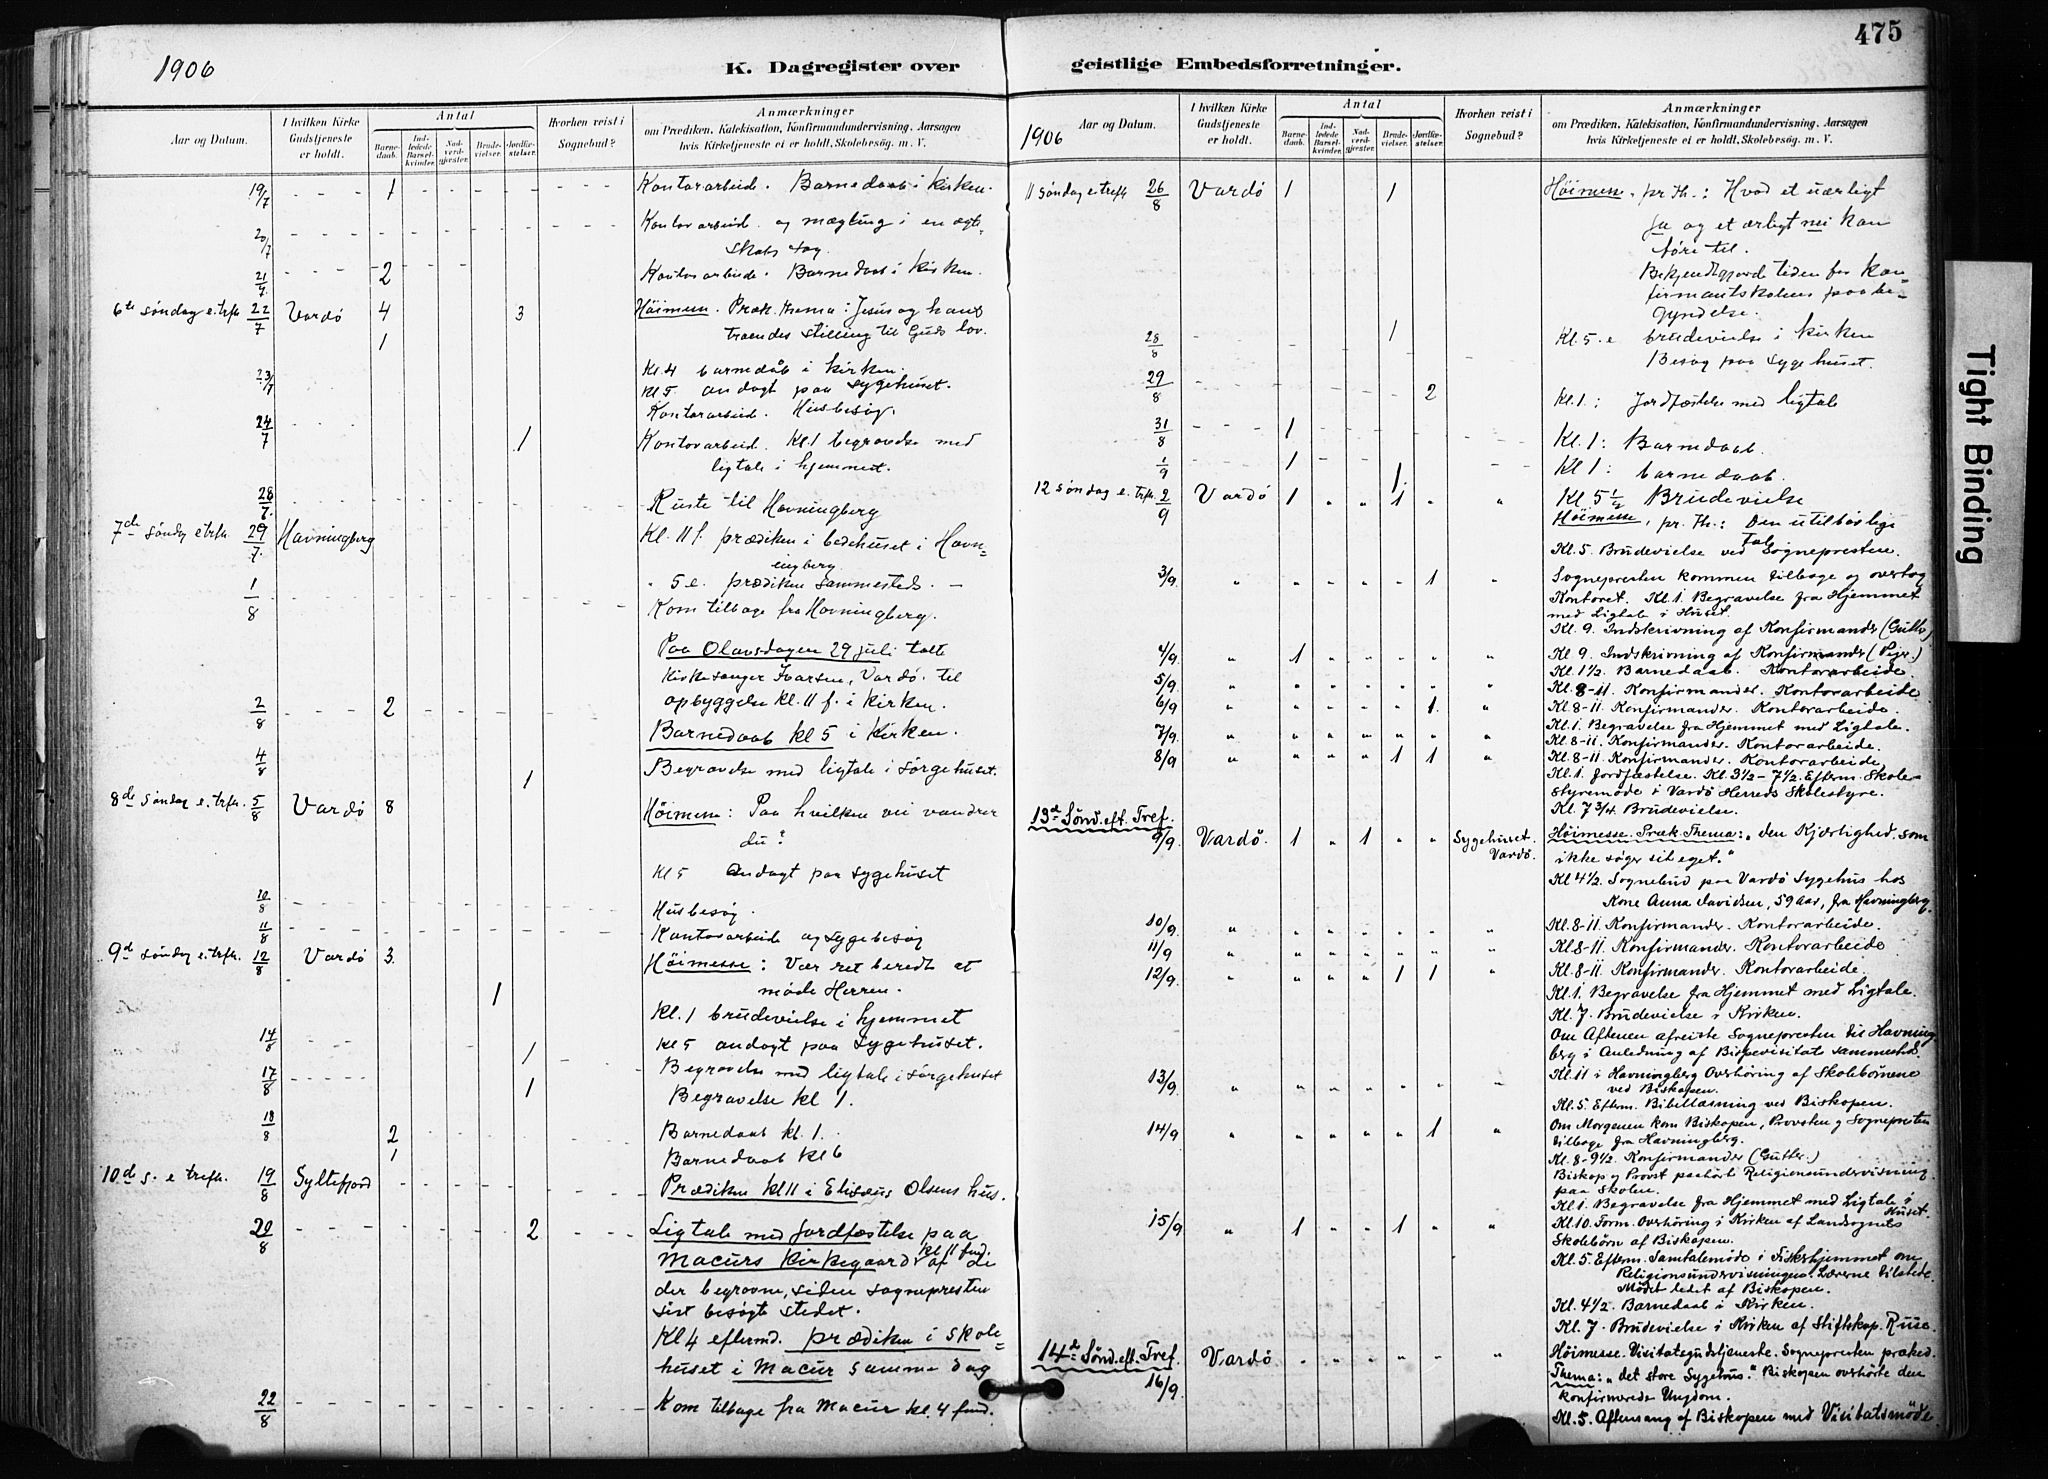 475
1906
K. Dagregister over geistlige Embedsforretninger.
Aar og Datum.
I hvilken Kirke Gudstjeneste er holdt.
Antal
Barnedaab.
Indledede Barselkvinder.
Nadverdgjester.
Brudevielser.
Jordfæstelser.
Hvorhen reist i Sognebud?
Anmærkninger
om Prædiken, Katekisation, Konfirmandundervisning, Aarsagen
hvis Kirketjeneste ei er holdt, Skolebesøg. m. V.
19/7 1 Kontorarbeid. Barnedaab i kirken.
20/7 Kontorarbeid og mægling i en ægte-
skabs sag.
21/7 2 Kontorarbeide. Barnedaab i kirken.
6te søndag e. trft. 22/7 Vardö 4 3 Höimesse. Præk. thema: Jesus og hans
troendes stilling til Guds lov.
1
Kl. 4 barnedåb i kirken.
23/7 Kl 5 andagt paa sygehuset.
Kontorarbeid. Husbesög.
24/7 1 Kontorarbeid. Kl. 1 begravelse med
ligtale i hjemmet.
28/7 Reiste til Havningberg
7de søndag e trft. 29/7 Havningberg Kl. 11 f. prædiken i bedehuset i Havn-
ingberg.
" 5 e. prædiken sammesteds. —
1/8 Kom tilbage fra Havningberg.
Paa Olavsdagen 29 juli talte
kirkesanger Ivarsen, Vardö, til
opbyggelse kl. 11 f. i kirken.
2/8 2 Barnedaab kl 5 i kirken.
4/8 1 Begravelse med ligtale i sörgehuset.
8de søndag e. trft. 5/8 Vardö 8 Höimesse: Paa hvilken vei vandrer
du?
Kl 5 Andagt paa sygehuset
10/8 Husbesög.
11/8 Kontorarbeide og sygebesög
9d søndag e. trft. 12/8 Vardö 3 Höimesse: Vær ret beredt at
möde Herren.
1 Kl. 1 brudevielse i hjemmet
Kl 5 andagt paa sygehuset.
14/8 1 Begravelse med ligtale i sörgehuset
17/8 1 Begravelse kl 1.
18/8 2 Barnedaab kl. 1.
1 Barnedaab kl 6
10de s. e trft. 19/8 Syltefjord Prædiken kl 11 i Elisæus Olsens hus.
20/8 2 Ligtale med jordfæstelse paa
Macurs kirkegaard kl 11 fmd. af de
der begravne, siden sognepresten
sist besøgte stedet.
Kl 4 eftermd. prædiken i skole-
huset i Macur samme dag
22/8 Kom tilbage fra Macur kl. 4 fmd.
1906
Aar og Datum.
I hvilken Kirke Gudstjeneste er holdt.
Antal
Barnedaab.
Indledede Barselkvinder.
Nadverdgjester.
Brudevielser.
Jordfæstelser.
Hvorhen reist i Sognebud?
Anmærkninger
om Prædiken, Katekisation, Konfirmandundervisning, Aarsagen
hvis Kirketjeneste ei er holdt, Skolebesøg. m. V.
11 søndag e. treft 26/8 Vardö 1 1 Höimesse, pr. Th.: Hvad et uærligt
ja og et ærligt nei kan
føre til.
Bekjendtgjorde tiden for kon-
firmantskolens paabe-
gyndelse.
28/8 1 Kl. 5. e brudevielse i kirken
Besög paa sygehuset.
29/8 2 Kl. 1.: Jordfæstelse med ligtale
31/8 1 Kl. 1: Barnedaab.
1/9 1 Kl 1: barnedaab.
1. Kl. 5 1/2 Brudevielse
12 søndag e. trft. 2/9 Vardö 1 " " 1 " " Höimesse, pr. Th.: Den utilbörlige
Tale
Kl. 5. Brudevielse ved Sognepresten.
3/9. " " " " " 1 " Sognepresten kommen tilbage og overtog
Kontoret. Kl. 1. Begravelse fra Hjemmet
med Ligtale i Huset.
Kl. 9. Indskrivning af Konfirmander (Gutter)
4/9. " 1 " " " " " Kl 9. Indskrivning af Konfirmander (Piger.)
Kl. 1½. Barnedaab. Kontorarbeide.
5/9. " " " " " " " Kl. 8-11. Konfirmander. Kontorarbeide
6/9 " " " " " 1. " Kl. 8-11. Konfirmander. Kontorarbeide.
Kl. 1. Begravelse fra Hjemmet med Ligtale.
7/9. " " " " " " " Kl. 8-11. Konfirmander. Kontorarbeide.
8/9 " " " " 1 1 " Kl. 8-11 Konfirmander. Kontorarbeide
Kl. 1. Jordfæstelse. Kl. 3½ – 7½. Efterm. Skole-
styremöde i Vardö Herreds Skolestyre.
Kl. 7 3/4. Brudevielse.
13de Sönd. eft. Tref.
9/9. Vardö. 1 " 1 " " Sygehuset Vardö. Höimesse. Præk. Thema: "den Kjærlighed, som
ikke söger sit eget."
Kl 4½. Sognebud paa Vardö Sygehus hos
Kone Anna Davidsen, 59 Aar, fra Havningberg.
10/9. " " " " " " " Kl. 8-11. Konfirmander. Kontorarbeide.
11/9 " " " " " " " Kl. 8-11. Konfirmander. Kontorarbeide
12/9. " " " " 1 1 " Kl. 8-11. Konfirmander. Kontorarbeide.
Kl. 1. Begravelse fra Hjemmet med Ligtale.
Kl. 7. Brudevielse i Kirken.
Om Aftenen afreiste Sognepresten til Havning-
berg i Anledning af Bispevisitats sammesteds.
13/9. " " " " " " " Kl. 11 i Havningberg Overhöring af Skolebörnene
ved Biskopen.
Kl. 5. Efterm. Bibellæsning ved Biskopen.
14/9 " " " " " 1 " Om Morgenen kom Biskopen, Provsten og Sognepresten
tilbage fra Havningberg.
Kl. 8-9½. Konfirmander (Gutter.)
Biskop og Provst paahörte Religionsundervisning
paa Skolen.
Kl. 1. Begravelse fra Hjemmet med Ligtale i
Huset.
15/9 " 1 " " 1 " " Kl. 10. Form. Overhöring i Kirken af Landsognets
Skolebörn af Biskopen.
Kl. 5. Efterm. Samtalemöde i Fiskerhjemmet om
Religionsundervisningen. Lærerne tilstede.
Mödet ledet af Biskopen.
Kl. 4½. Barnedaab i Kirken.
Kl. 7. Brudevielse i Kirken af Stiftskap. Ruud.
14de Sönd. eft. Tref. Vardö " " " " " " Höimesse. Visitatsgudstjeneste. Sognepresten præked.
16/9. Thema: "det store Sygehus." Biskopen overhörte den
konfirmerede Ungdom.
Kl. 5. Aftensang af Biskopen med Visitatsmöde.
Tight Binding